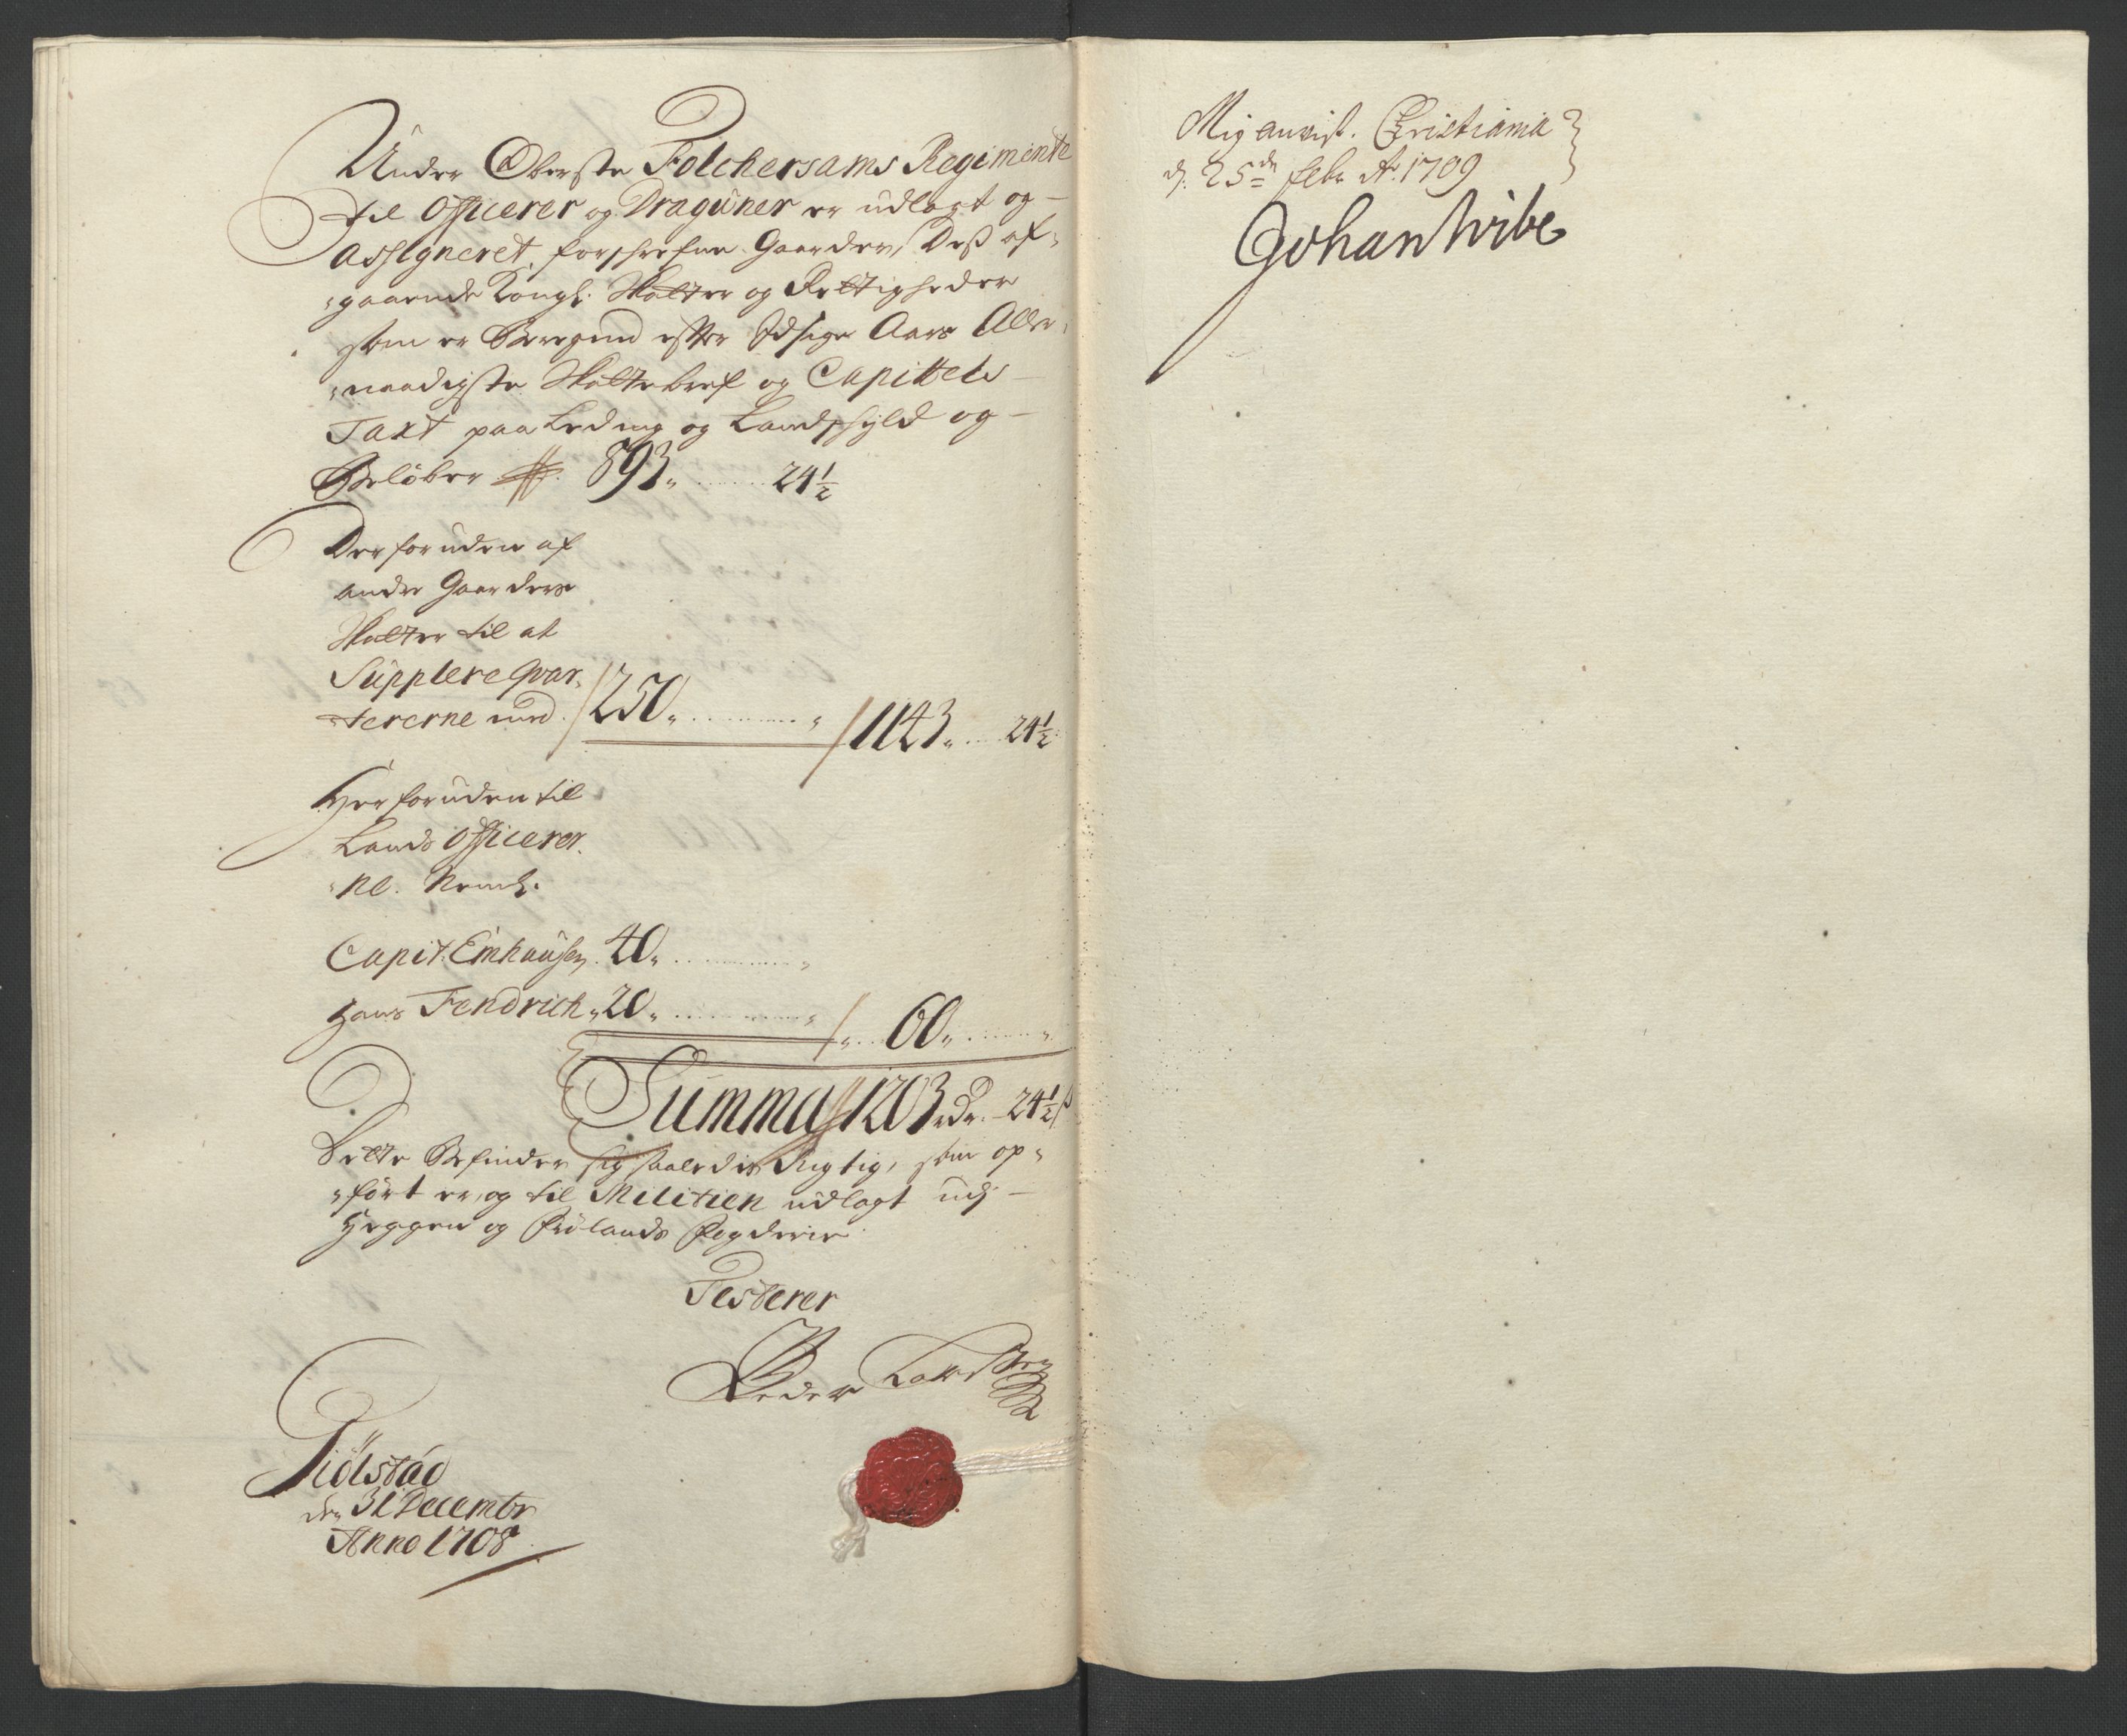 Under Oberste Folchersams Regimente
til Officerer og Dragüner er udlagt og
assigneret forschrefne Gaarder, Dess af-
gaaende Kongl: Skatter og Rettigheder
som er Beregned efter Idsige Aars Aller-
naadigste Skattebref og Capittels
Taxt paa Leding og Landschyld og
Beløber 893 „ 24½
Derforuden af
andre Gaarders
Skatter til at
Supplere Qvar-
tererne med 250 „ „ 1143 „ 24½
Herforuden til
Lands Officerer-
ne. Neml:
Capit: Emhausen 40 „ „
Hans Fendrich „ 20 „ „ 60 „ „
Summa 1203 rdr. 24½ s
Dette Befindes sig saaledis Rigtig, som op-
ført er, og til Militien udlagt udj
Heggen og Frølands Fogderie
Testerer
Peder
Anno 1708
den 31 Decembr
Mig anvist. Christiania
d: 25de febr Ao. 1709
Johan Wibe